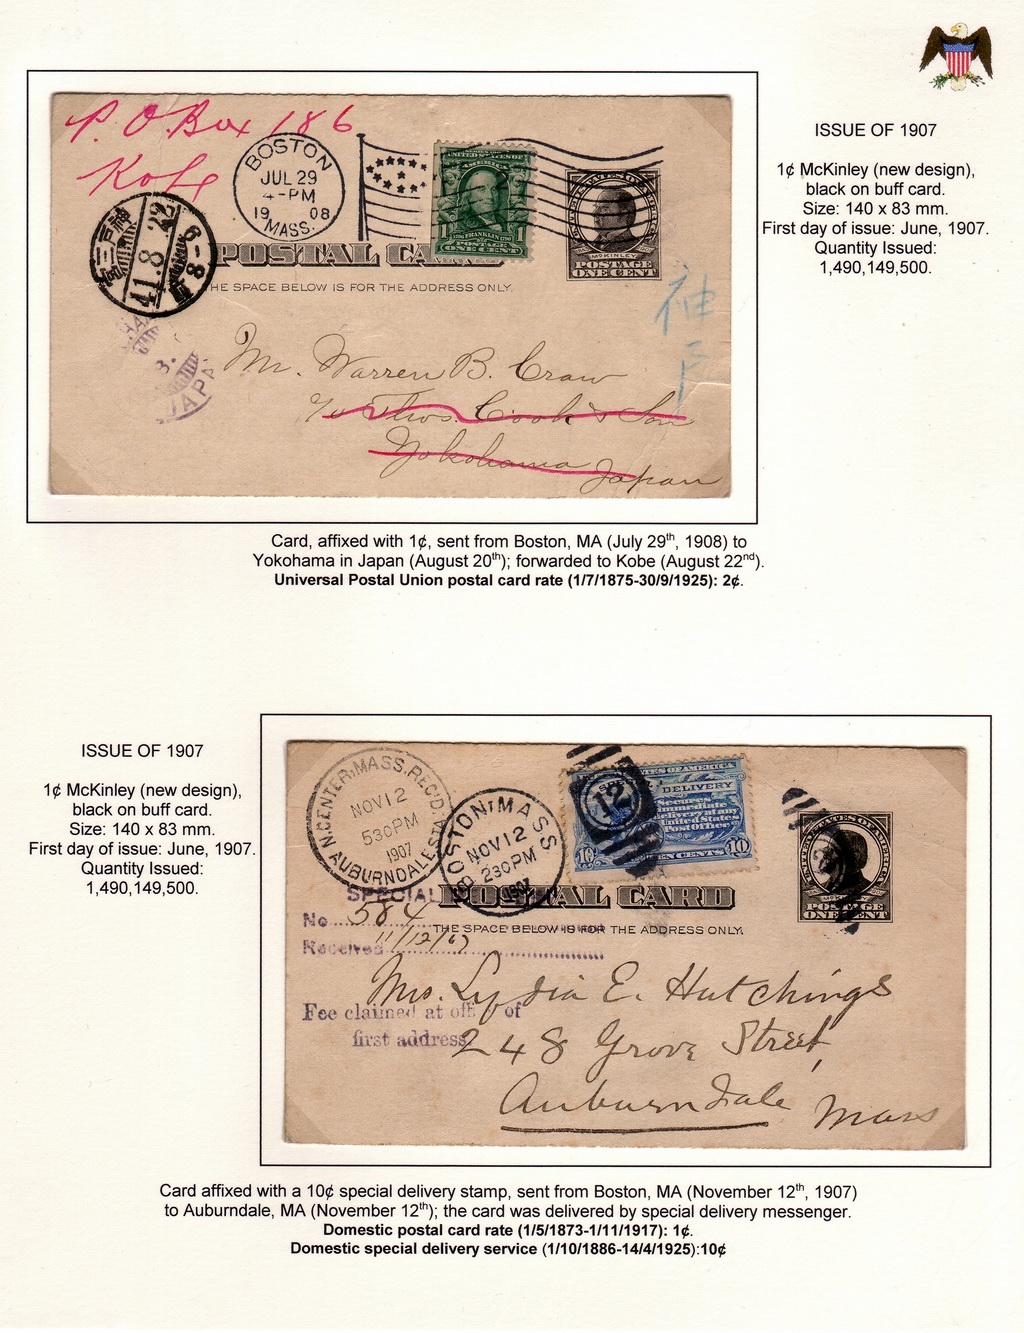 ISSUE OF 1907
1¢ McKinley (new design),
black on buff card.
Size: 140 x 83 mm.
First day of issue: June, 1907.
Quantity Issued:
1,490,149,500.
P. O. Box 186
Kobe
BOSTON
JUL 29
4-PM
19 08
MASS.
SERIES 1902
UNITED STATES OF
AMERICA
1 FRANKLIN 1
POSTAGE
ONE CENT
UNITED STATES OF AMERICA
McKINLEY
POSTAGE
ONE CENT
41.8.22
POSTAL CA
HE SPACE BELOW IS FOR THE ADDRESS ONLY.
神戸
3.
JAPA
Mr. Warren B. Craw
c/o Thos. Cook & Son
Yokohama
Japan
Card, affixed with 1¢, sent from Boston, MA (July 29th, 1908) to
Yokohama in Japan (August 20th); forwarded to Kobe (August 22nd).
Universal Postal Union postal card rate (1/7/1875-30/9/1925): 2¢.
ISSUE OF 1907
1¢ McKinley (new design),
black on buff card.
Size: 140 x 83 mm.
First day of issue: June, 1907.
Quantity Issued:
1,490,149,500.
N.CENTER, MASS. REC'D.
NOV 12
530 PM
1907
AUBURNDALE STA.
BOSTON, MASS
NOV 12
230 PM
1907
12
STATES OF AMERICA
DELIVERY
Secures
immediate
delivery at any
United States
Post Office
10 TEN CENTS 10
STATES OF AMERICA
POSTAGE
ONE CENT
SPECIAL
POSTAL CARD
No. 584
THE SPACE BELOW IS FOR THE ADDRESS ONLY.
Received 11/12/07
Mrs. Lydia E. Hutchings
Fee claimed at of
first address.
248 Grove Street,
Auburndale Mass
Card affixed with a 10¢ special delivery stamp, sent from Boston, MA (November 12th, 1907)
to Auburndale, MA (November 12th); the card was delivered by special delivery messenger.
Domestic postal card rate (1/5/1873-1/11/1917): 1¢.
Domestic special delivery service (1/10/1886-14/4/1925):10¢